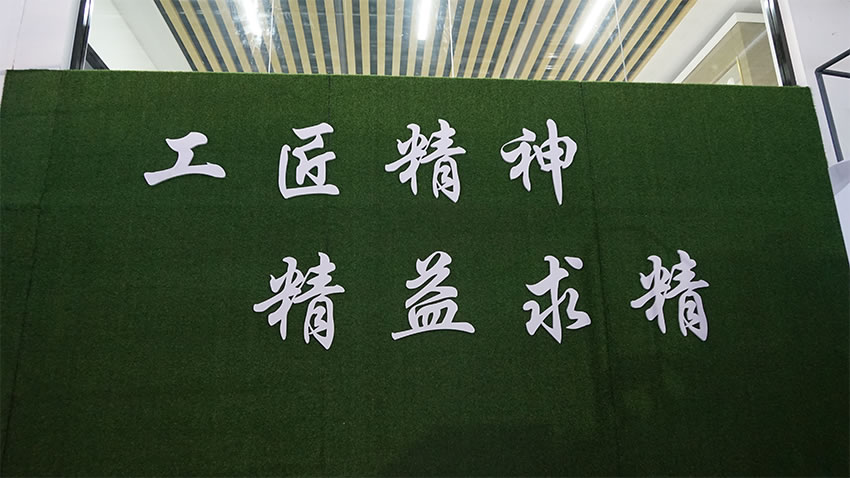 工匠精神
精益求精